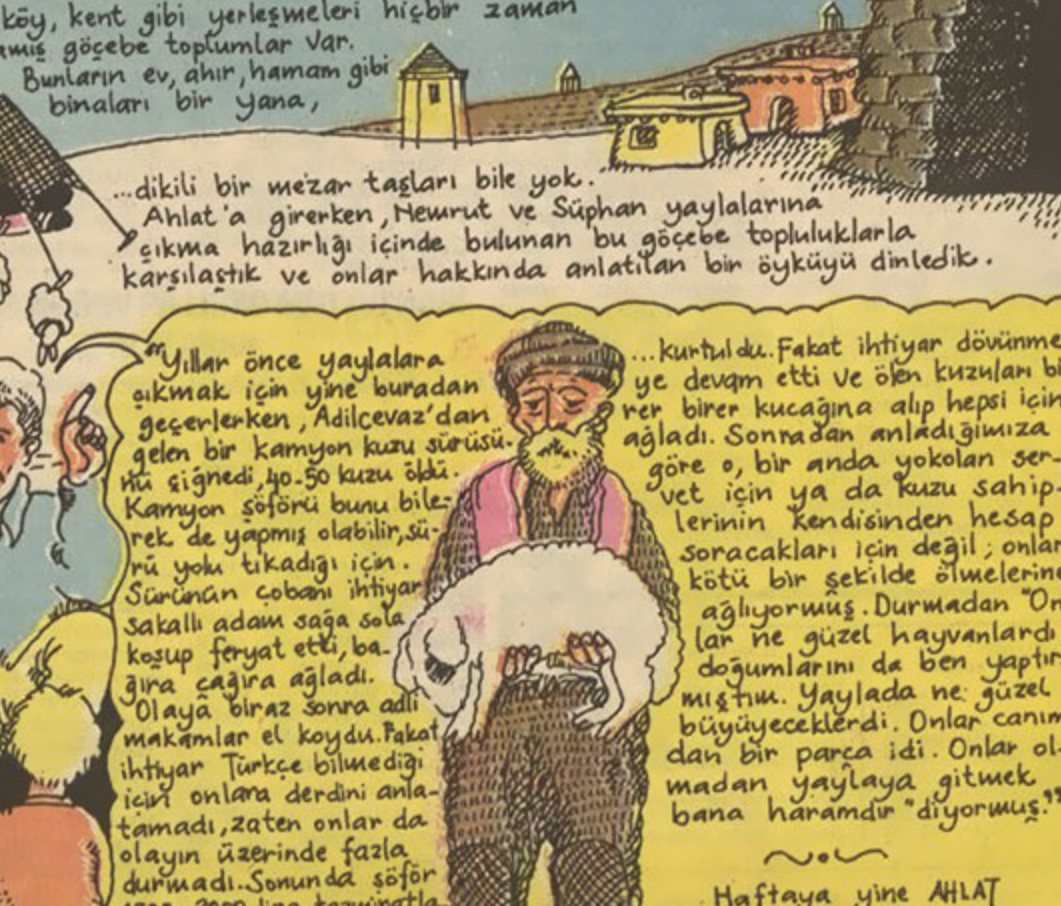 köy, kent gibi yerleşmeleri hiçbir zaman
göçebe toplumlar var.
Bunların ev, ahır, hamam gibi
binaları bir yana,
...dikili bir mezar taşları bile yok.
Ahlat'a girerken, Nemrut ve Süphan yaylalarına
çıkma hazırlığı içinde bulunan bu göçebe topluluklarla
karşılaştık ve onlar hakkında anlatılan bir öyküyü dinledik.
"Yıllar önce yaylalara
çıkmak için yine buradan
geçerlerken, Adilcevaz'dan
gelen bir kamyon kuzu sürüsü-
nü çiğnedi, 40-50 kuzu öldü.
Kamyon şöförü bunu bile-
rek de yapmış olabilir, sü-
rü yolu tıkadığı için.
Sürünün çobanı ihtiyar
sakallı adam sağa sola
koşup feryat etti, ba-
ğıra çağıra ağladı.
Olaya biraz sonra adli
makamlar el koydu. Fakat
ihtiyar Türkçe bilmediği
için onlara derdini anla-
tamadı, zaten onlar da
olayın üzerinde fazla
durmadı. Sonunda şöför
lira tazminatla
...kurtuldu. Fakat ihtiyar dövünme
ye devam etti ve ölen kuzuları bi
rer birer kucağına alıp hepsi için
ağladı. Sonradan anladığımıza
göre o, bir anda yokolan ser-
vet için ya da kuzu sahip-
lerinin kendisinden hesap
soracakları için değil; onlar
kötü bir şekilde ölmelerine
ağlıyormuş. Durmadan "On
lar ne güzel hayvanlardı
doğumlarını da ben yaptır
mıştım. Yaylada ne güzel
büyüyeceklerdi. Onlar canım
dan bir parça idi. Onlar ol
madan yaylaya gitmek
bana haramdır" diyormuş."
Haftaya yine AHLAT